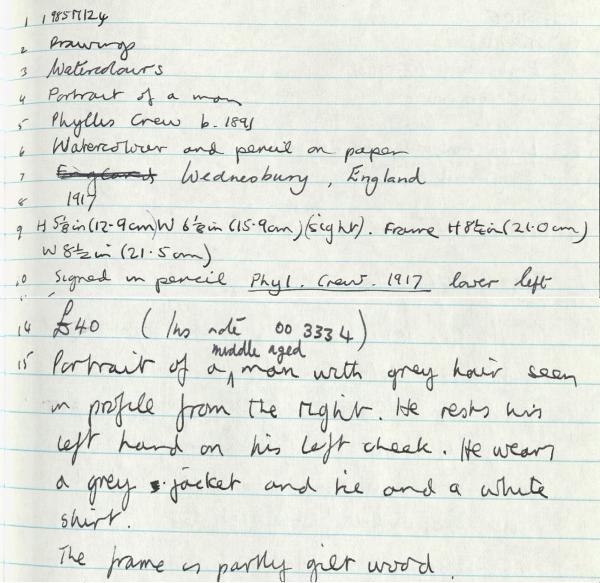 1 1985M24
2 Drawings
3 Watercolours
4 Portrait of a man
5 Phyllis Crew b. 1891
6 Watercolour and pencil on paper
7 England Wednesbury, England
8 1917
9 H 5⅛in (12.9cm) W 6¼in (15.9cm) (sight). Frame H 8¼in (21.0cm)
W 8½in (21.5cm)
10 Signed in pencil Phyl. Crew. 1917 lower left
14 £40 (Ins note 00 3334)
middle aged
15 Portrait of a ^ man with grey hair seen
in profile from the right. He rests his
left hand on his left cheek. He wears
a grey jacket and tie and a white
shirt.
The frame is partly gilt wood.